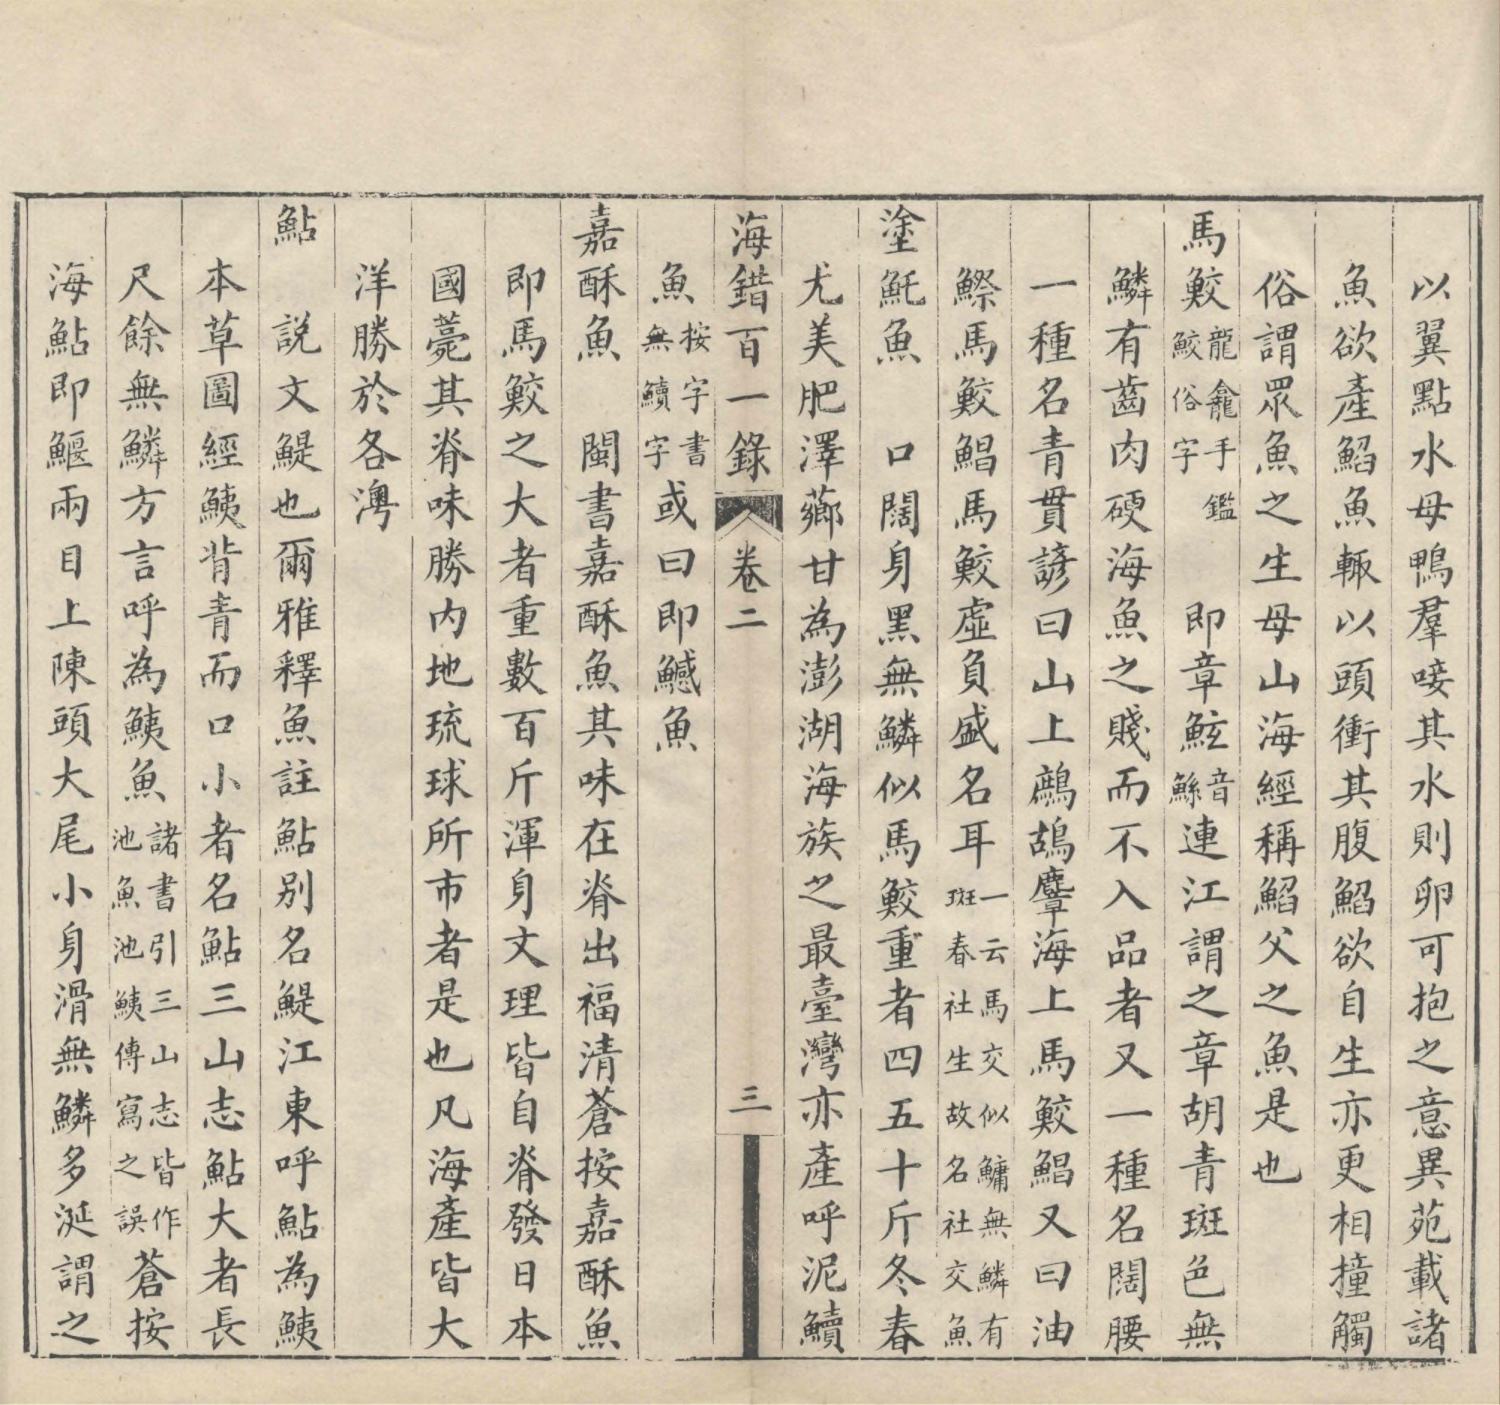 以翼點水母鴨羣唼其水則卵可抱之意異苑載諸
魚欲產䱤魚輙以頭衝其腹䱤欲自生亦更相撞觸
俗謂眾魚之生母山海經稱䱤父之魚是也
馬鮫龍龕手鑑鮫俗字 即章鮌音鯀連江謂之章胡青斑色無
鱗有齒肉硬海魚之賤而不入品者又一種名闊腰
一種名青貫諺曰山上鷓鴣麞海上馬鮫鯧又曰油
鰶馬鮫鯧馬鮫虛負盛名耳一云馬交似鱅無鱗有斑春社生故名社交魚
塗魠魚 口闊身黑無鱗似馬鮫重者四五十斤冬春
尤美肥澤薌甘為澎湖海族之最臺灣亦產呼泥鱝
海錯百一錄 卷二 三
魚按字書無鱝字或曰即鰄魚
嘉酥魚 閩書嘉酥魚其味在脊出福清蒼按嘉酥魚
即馬鮫之大者重數百斤渾身文理皆自脊發日本
國薨其脊味勝內地琉球所市者是也凡海產皆大
洋勝於各澳
鮎 說文鯷也爾雅釋魚註鮎別名鯷江東呼鮎為鮧
本草圖經鮧背青而口小者名鮎三山志鮎大者長
尺餘無鱗方言呼為鮧魚諸書引三山志皆作池魚池鮧傳寫之誤蒼按
海鮎即鰋兩目上陳頭大尾小身滑無鱗多涎謂之